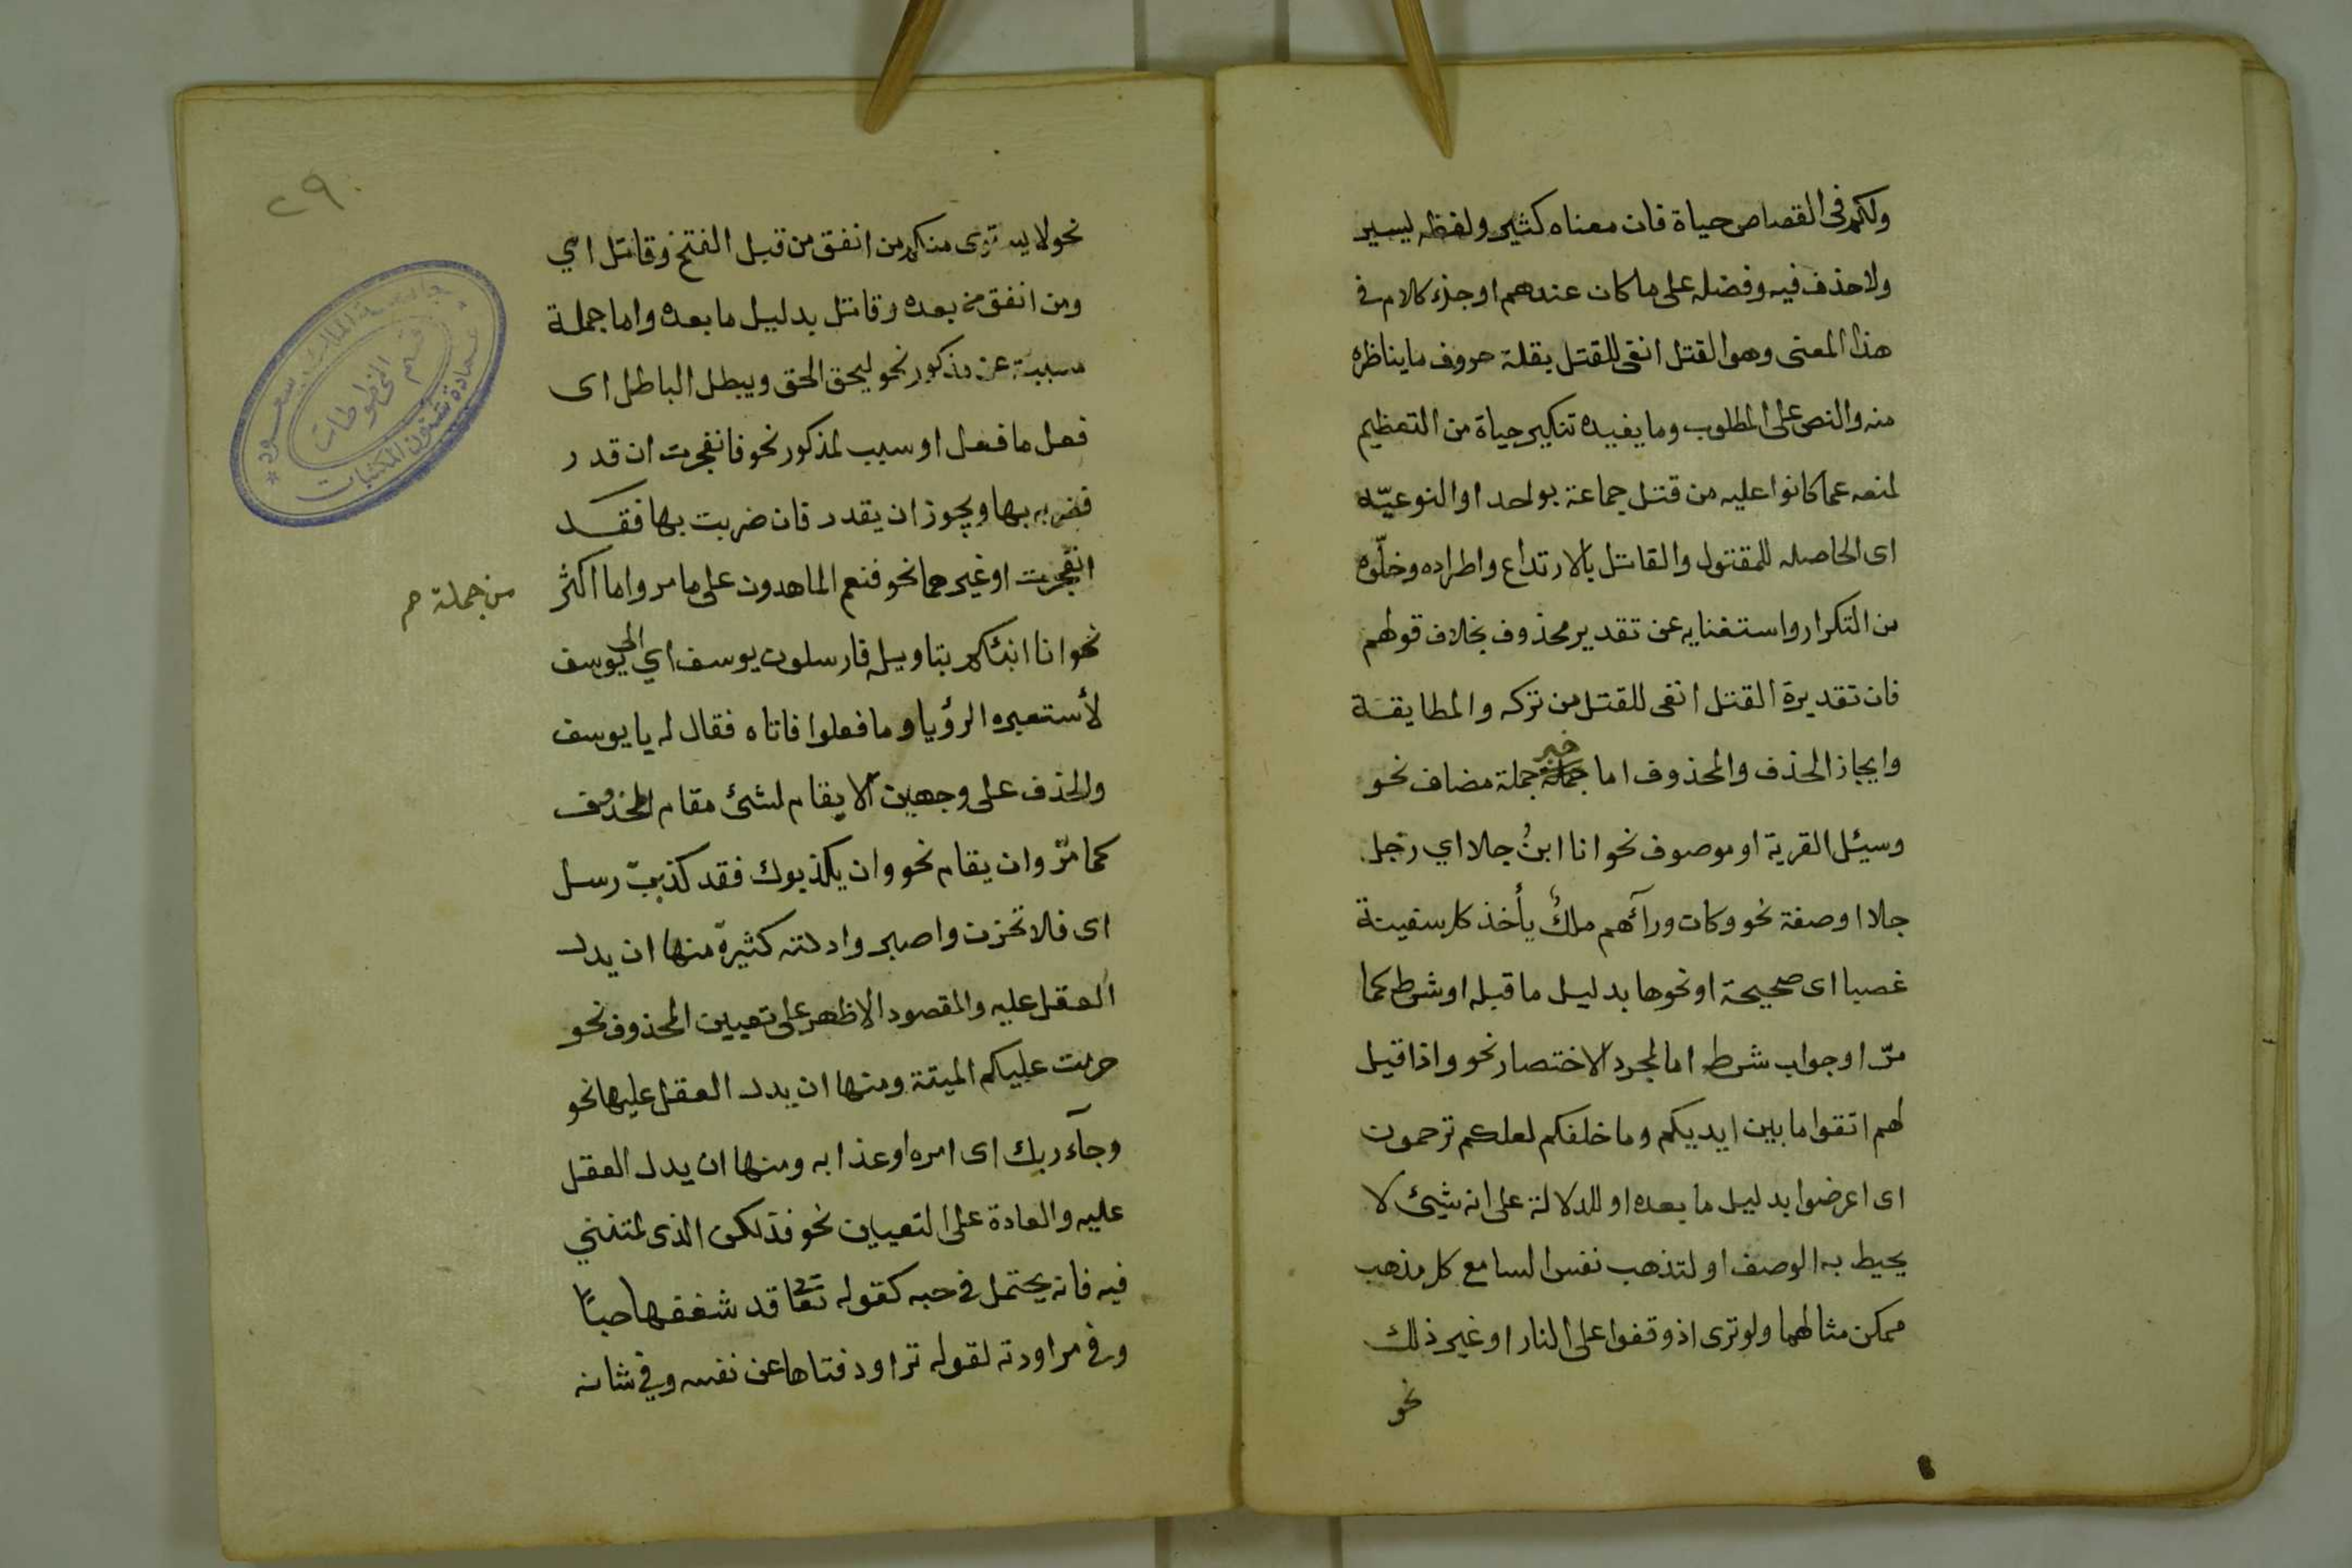 ولكم في القصاص حياة فان معناه كثير ولفظه يسير
ولا حذف فيه وفضله على ما كان عندهم اوجز كلام في
هذا المعنى وهو القتل انفى للقتل بقلة حروف ما يناظره
منه والنص على المطلوب وما يفيده تنكير حياة من التعظيم
لمنعه عما كانوا عليه من قتل جماعة بواحد او النوعيّه
اى الحاصله للمقتول والقاتل بالارتداع واطراده وخلّوه
من التكرار واستغنايه عن تقدير محذوف بخلاف قولهم
فان تقديرة القتل انفى للقتل من تركه والمطابقة
وايجاز الحذف والمحذوف اما جملة جملة مضاف نحو
خبر
وسيئل القرية او موصوف نحو انا ابنُ جلا اي رجل
جلا او صفة نحو وكان ورآهم ملكٌ يأخذ كل سفينة
غصبا اى صحيحة او نحوها بدليل ما قبله او شرط كما
مرّ او جواب شرط اما لمجرد الاختصار نحو واذا قيل
لهم اتقوا ما بين ايديكم وما خلفكم لعلكم ترحمون
اى اعرضوا بدليل ما بعده او للدلالة على انه شيئ لا
يحيط به الوصف او لتذهب نفس السامع كل مذهب
ممكن مثالهما ولو ترى اذ وقفوا على النار او غير ذلك
نحو
٢٩٠
نحو لا يستوى منكم من انفق من قبل الفتح وقاتل اي
ومن انفق من بعده وقاتل بدليل ما بعده واما جملة
مسببة عن مذكور نحو ليحق الحق ويبطل الباطل اى
فعل ما فعل او سبب لمذكور نحو فانفجرت ان قدر
فضربه بها ويجوز ان يقدر فان ضربت بها فقد
انفجرت او غيرهما نحو فنعم الماهدون على ما مر واما اكثر
من جملة م
نحو انا انبئكم بتاويله فارسلون يوسف اي الى يوسف
لأستعبره الرؤيا وما فعلوا فاتاه فقال له يا يوسف
والحذف على وجهين الا يقام لشئ مقام المحذوف
كما مرّ وان يقام نحو وان يكذبوك فقد كذبت رسل
اى فلا تحزن واصبر وادلته كثيرة منها ان يدل
العقل عليه والمقصود الاظهر على تعيين المحذوف نحو
حرمت عليكم الميتة ومنها ان يدل العقل عليها نحو
وجآء ربك اى امره او عذابه ومنها ان يدل العقل
عليه والعادة على التعيين نحو فذلكن الذى لمتنني
فيه فانه يحتمل في حبه كقوله تعا قد شغفها حباً
وفي مراودته لقوله تراود فتاها عن نفسه وفي شانه
جامعة الملك سعود
عمادة شئون المكتبات
قسم المخطوطات